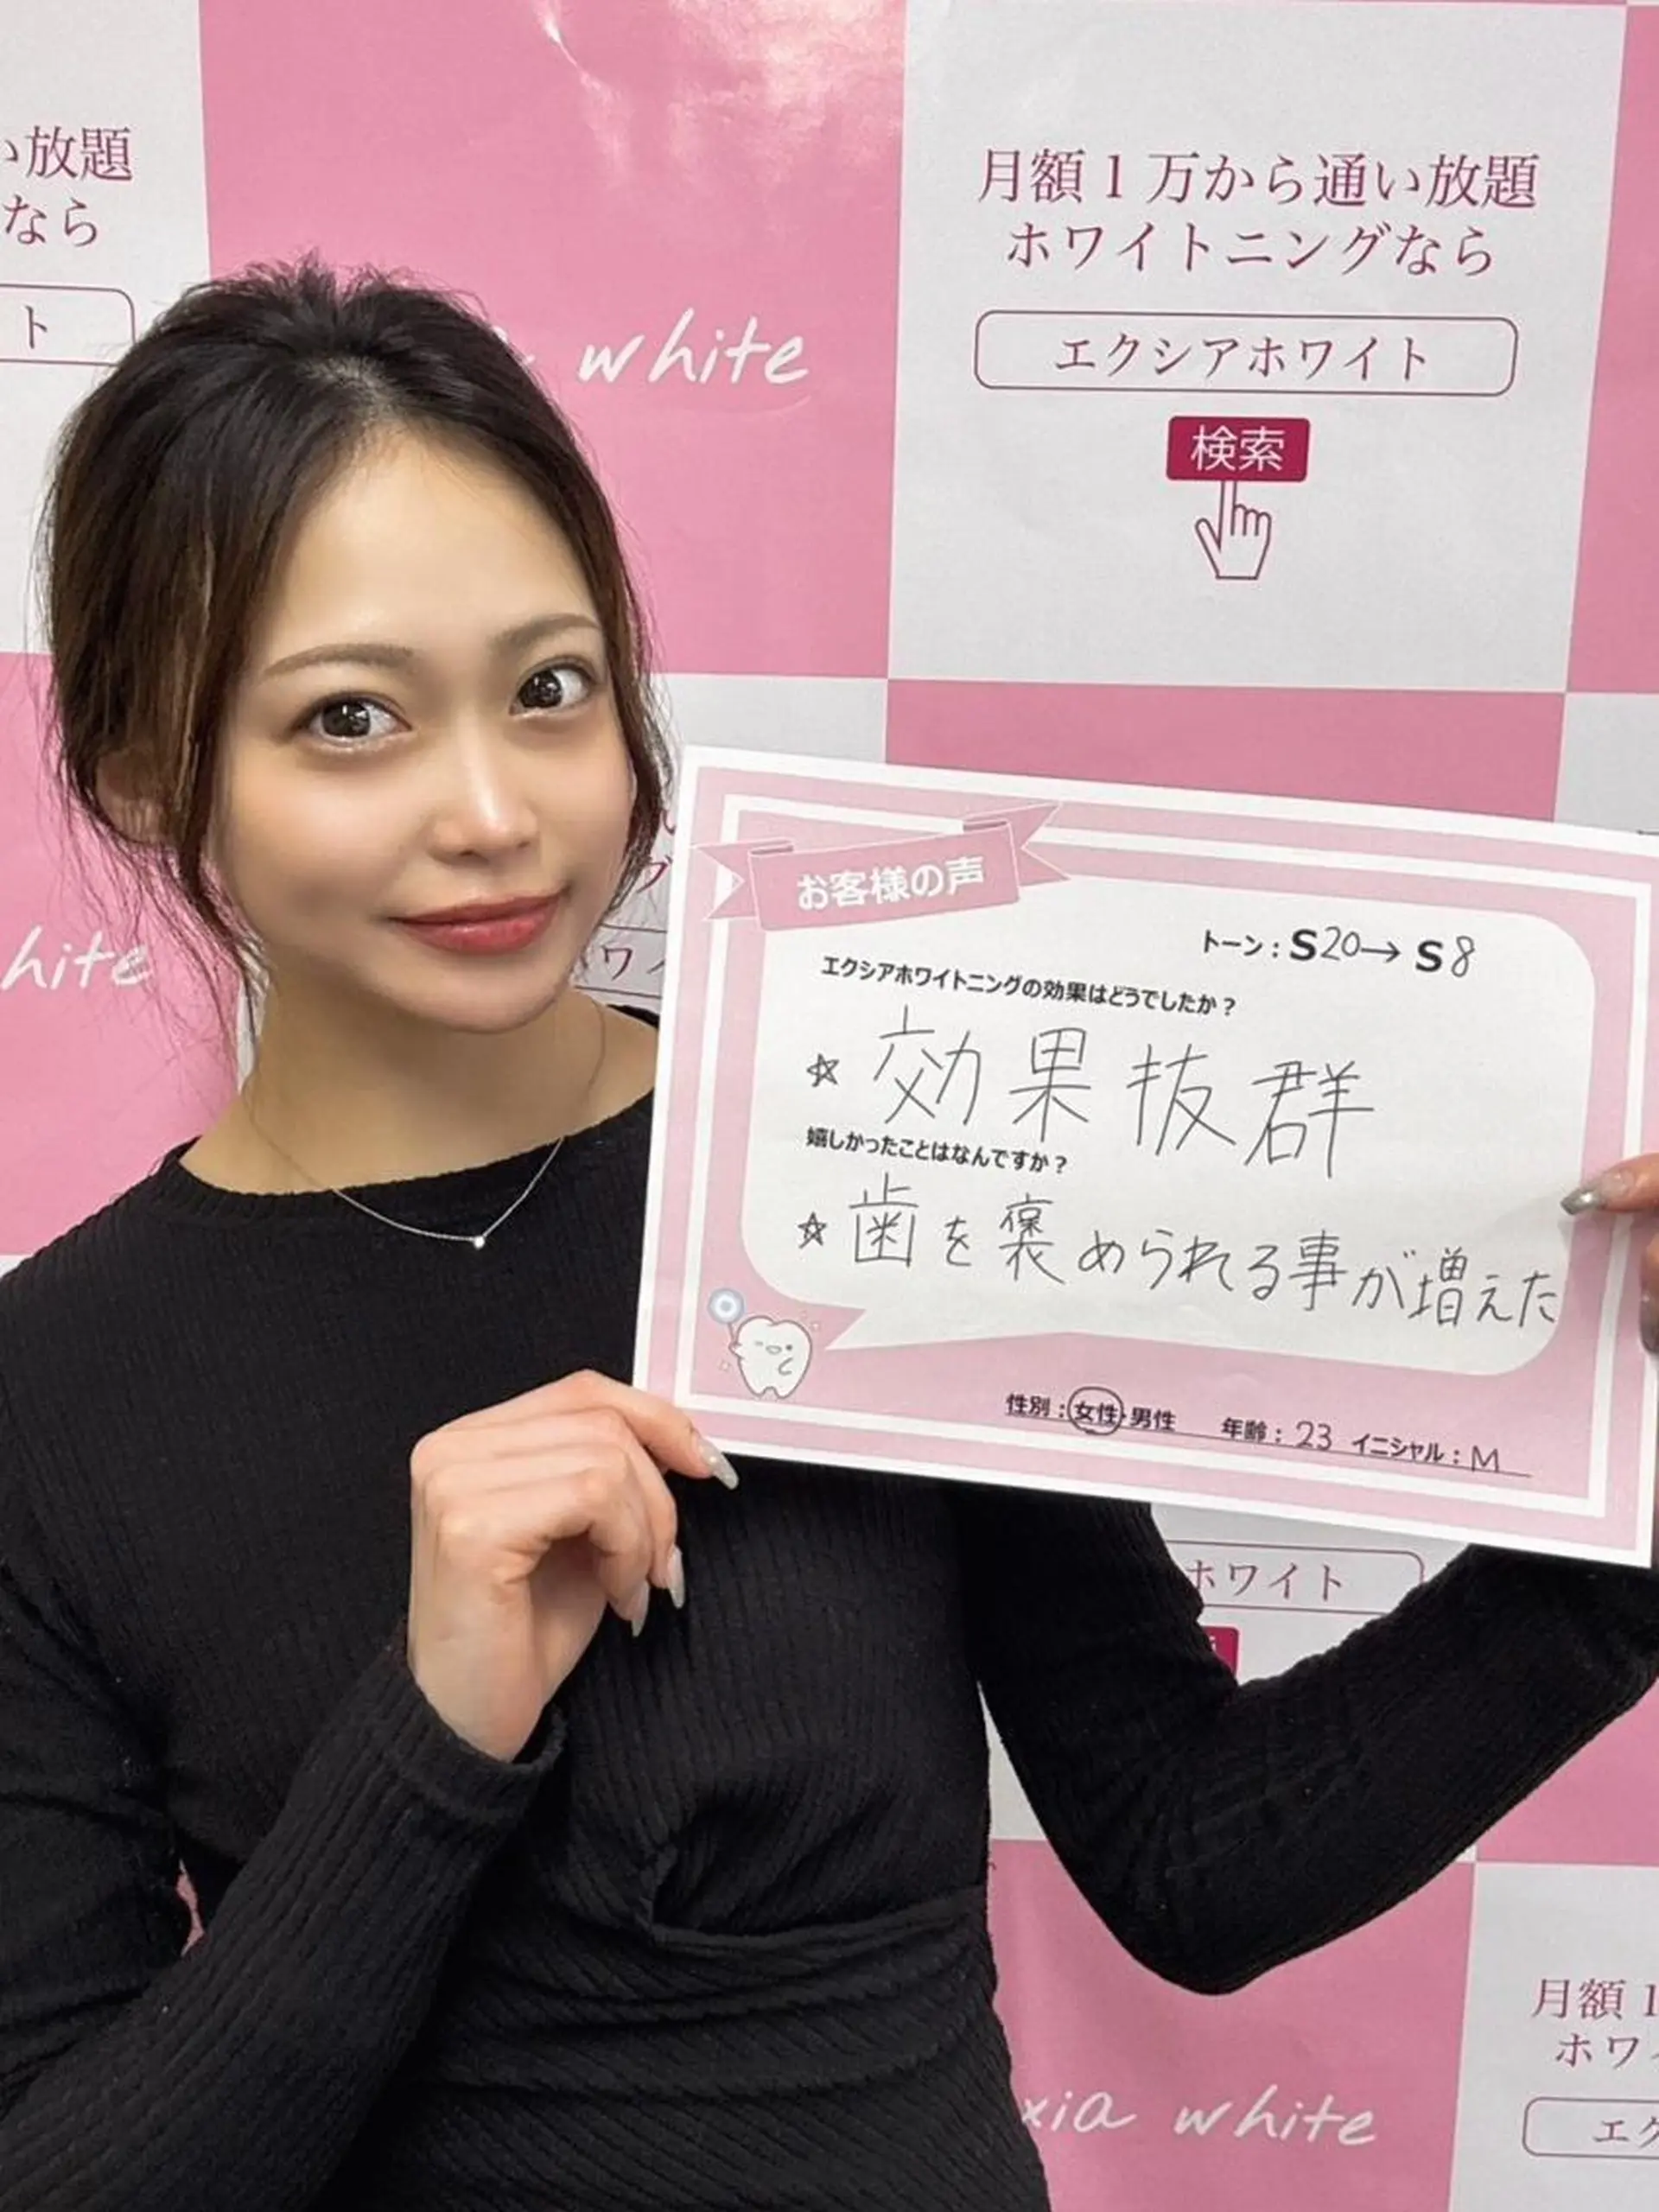 い放題
なら
ト
white
月額1万から通い放題
ホワイトニングなら
エクシアホワイト
検索
hite
お客様の声
トーン:S20→S8
エクシアホワイトニングの効果はどうでしたか?
☆ 効果抜群
嬉しかったことはなんですか?
☆ 歯を褒められる事が増えた
性別:女性・男性 年齢:23 イニシャル:M
ホワイト
月額1
ホワ
xia white
エク